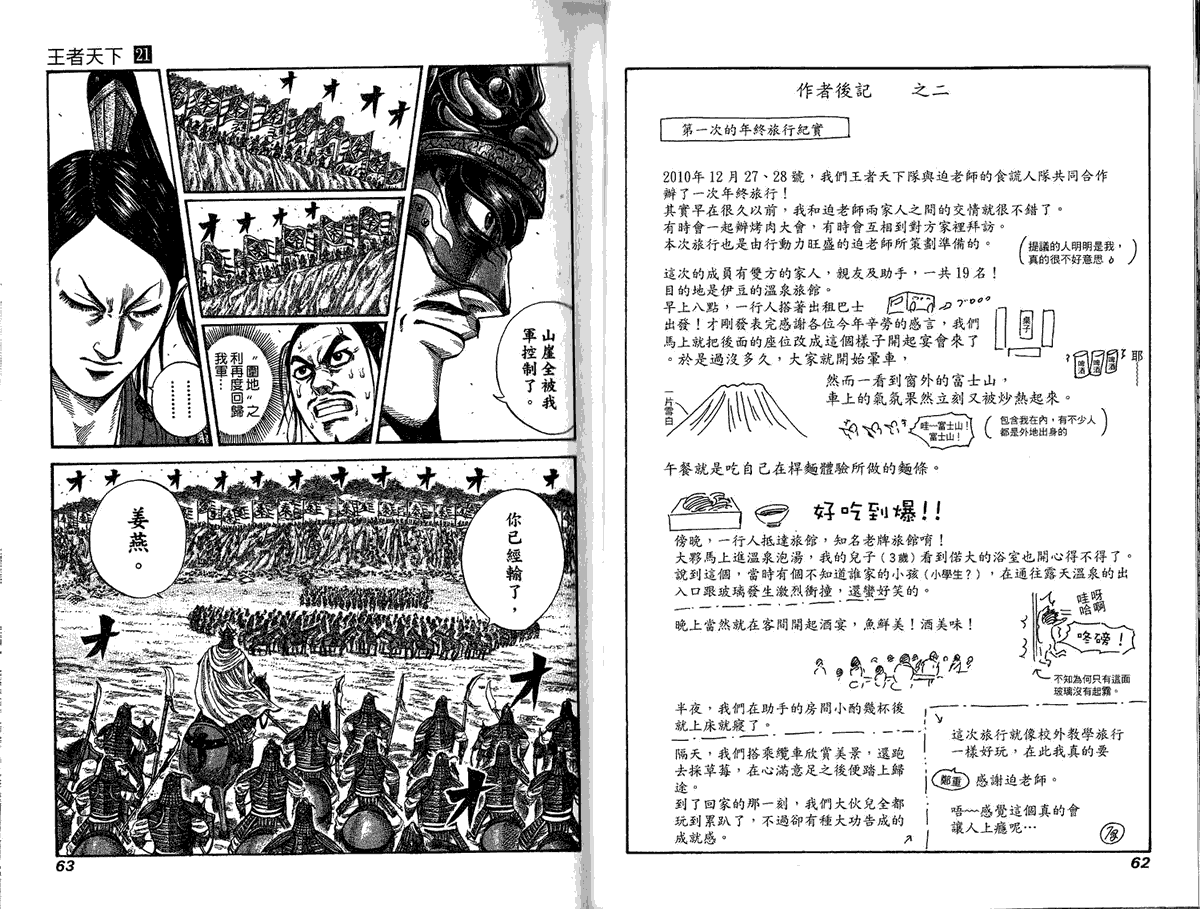 作者後記　之二
第一次的年終旅行紀實
2010年12月27、28號，我們王者天下隊與迫老師的食謊人隊共同合作
辦了一次年終旅行！
其實早在很久以前，我和迫老師兩家人之間的交情就很不錯了。
有時會一起辦烤肉大會，有時會互相到對方家裡拜訪。
本次旅行也是由行動力旺盛的迫老師所策劃準備的。
（提議的人明明是我，
真的很不好意思）
這次的成員有雙方的家人，親友及助手，一共19名！
目的地是伊豆的溫泉旅館。
早上八點，一行人搭著出租巴士
出發！才剛發表完感謝各位今年辛勞的感言，我們
馬上就把後面的座位改成這個樣子開起宴會來了
。於是過沒多久，大家就開始暈車，
桌子
啤酒
啤酒
啤酒
耶
然而一看到窗外的富士山，
車上的氣氛果然立刻又被炒熱起來。
一片雪白
哇─富士山！
富士山！
（包含我在內，有不少人
都是外地出身的）
午餐就是吃自己在桿麵體驗所做的麵條。
好吃到爆！！
傍晚，一行人抵達旅館，知名老牌旅館唷！
大夥馬上進溫泉泡湯，我的兒子（3歲）看到偌大的浴室也開心得不得了。
說到這個，當時有個不知道誰家的小孩（小學生？），在通往露天溫泉的出
入口跟玻璃發生激烈衝撞，還蠻好笑的。
哇呀
哈啊
咚磅！
不知為何只有這面
玻璃沒有起霧。
晚上當然就在客間開起酒宴，魚鮮美！酒美味！
半夜，我們在助手的房間小酌幾杯後
就上床就寢了。
隔天，我們搭乘纜車欣賞美景，還跑
去採草莓，在心滿意足之後便踏上歸
途。
到了回家的那一刻，我們大伙兒全都
玩到累趴了，不過卻有種大功告成的
成就感。
這次旅行就像校外教學旅行
一樣好玩，在此我真的要
鄭重
感謝迫老師。
唔~~感覺這個真的會
讓人上癮呢…
62
王者天下 21
オ
オ
オ
オ
オ
オ
オ
オ
山崖全被我
軍控制了。
〝圍地〞之
利再度回歸
我軍…
………
オ
オ
オ
オ
オ
オ
オ
オ
オ
你已經輸了，
姜燕。
オ
オ
オ
63